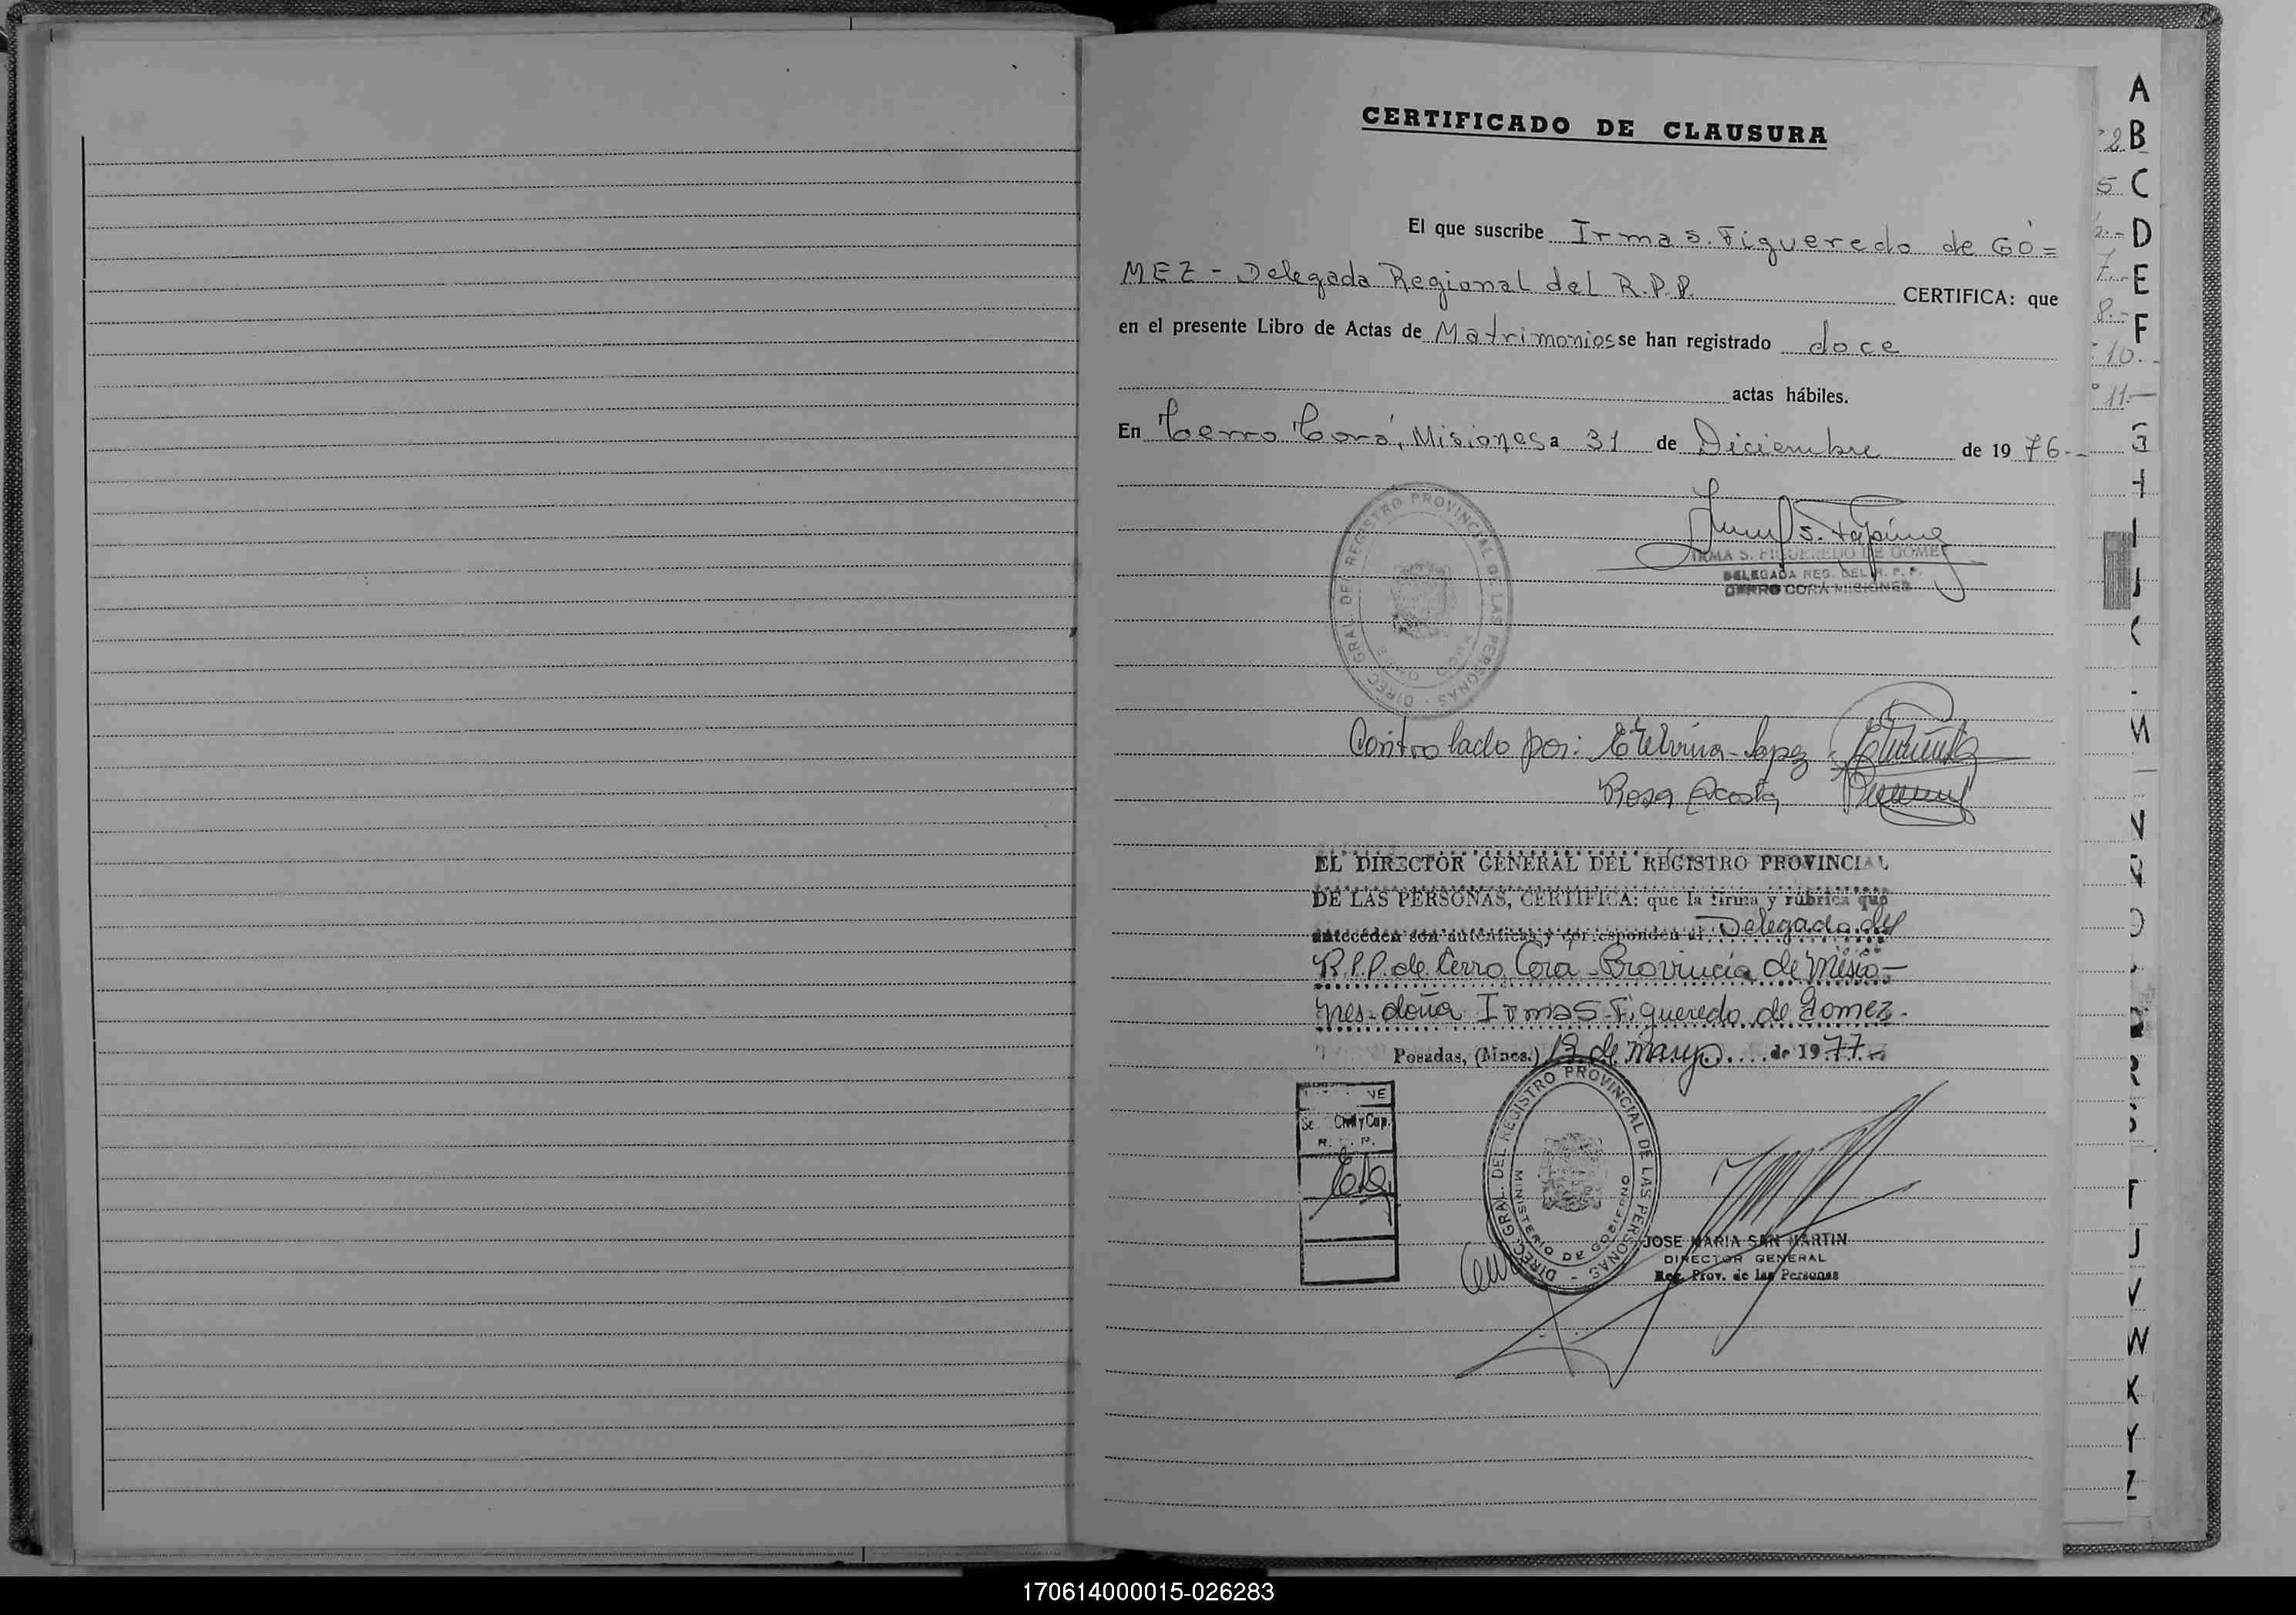 CERTIFICADO DE CLAUSURA
El que suscribe Irma S. Figueredo de GÓ=
MEZ - Delegada Regional del R.P.P. CERTIFICA: que
en el presente Libro de Actas de Matrimonios se han registrado doce
actas hábiles.
En Cerro Corá, Misiones a 31 de Diciembre de 1976.-
DIREC. GRAL. DEL REGISTRO PROVINCIAL DE LAS PERSONAS
IRMA S. FIGUEREDO DE GOMEZ
DELEGADA REG. DEL R. P. P.
CERRO CORÁ MISIONES
Controlado por: Etelvina - Lopez
Rosa Acosta
EL DIRECTOR GENERAL DEL REGISTRO PROVINCIAL
DE LAS PERSONAS, CERTIFICA: que la firma y rúbrica que
anteceden son auténticas y corresponden al Delegado del
R.P.P. de Cerro Cora - Provincia de Misio-
nes - doña Irma S. Figueredo de Gomez.
Posadas, (Mnes.) 19 de mayo de 1977.-
Civil y Cap.
DIREC. GRAL. DEL REGISTRO PROVINCIAL DE LAS PERSONAS
MINISTERIO DE GOBIERNO
JOSE MARIA SAN MARTIN
DIRECTOR GENERAL
Reg. Prov. de las Personas
A
2 B
5 C
2.- D
7.- E
8.- F
10.-
11.-
M
N
R
S
T
J
V
W
K
Y
Z
170614000015-026283